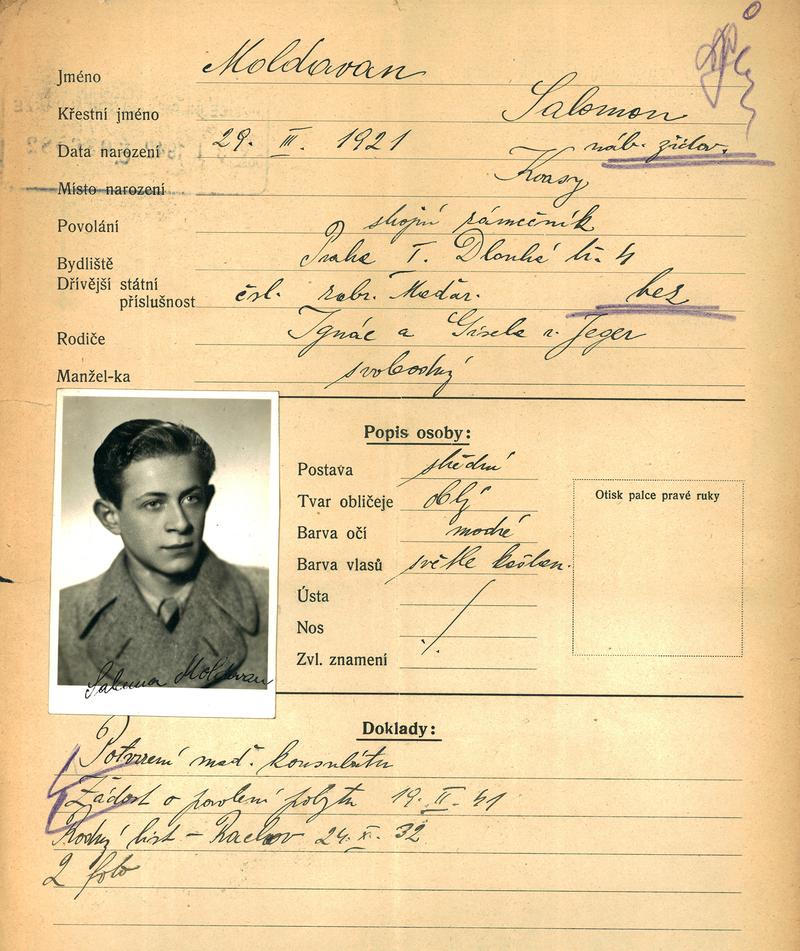 Jméno Moldavan
Křestní jméno Salomon
Data narození 29. III. 1921 náb. židov.
Místo narození Kvasy
Povolání strojní zámečník
Bydliště Praha I. Dlouhá tř. 41
Dřívější státní
příslušnost čsl. zabr. Maďar. bez
Rodiče Ignác a Gisela r. Jeger
Manžel-ka svobodný
Popis osoby:
Postava střední
Tvar obličeje oblý
Barva očí modré
Barva vlasů světle kaštan.
Ústa
Nos
Zvl. znamení
Otisk palce pravé ruky
Salomon Moldavan
Doklady:
Potvrzení maď. konsulátu
Žádost o povolení pobytu 19. II. 41
Rodný list - Rachov 24. X. 32
2 foto